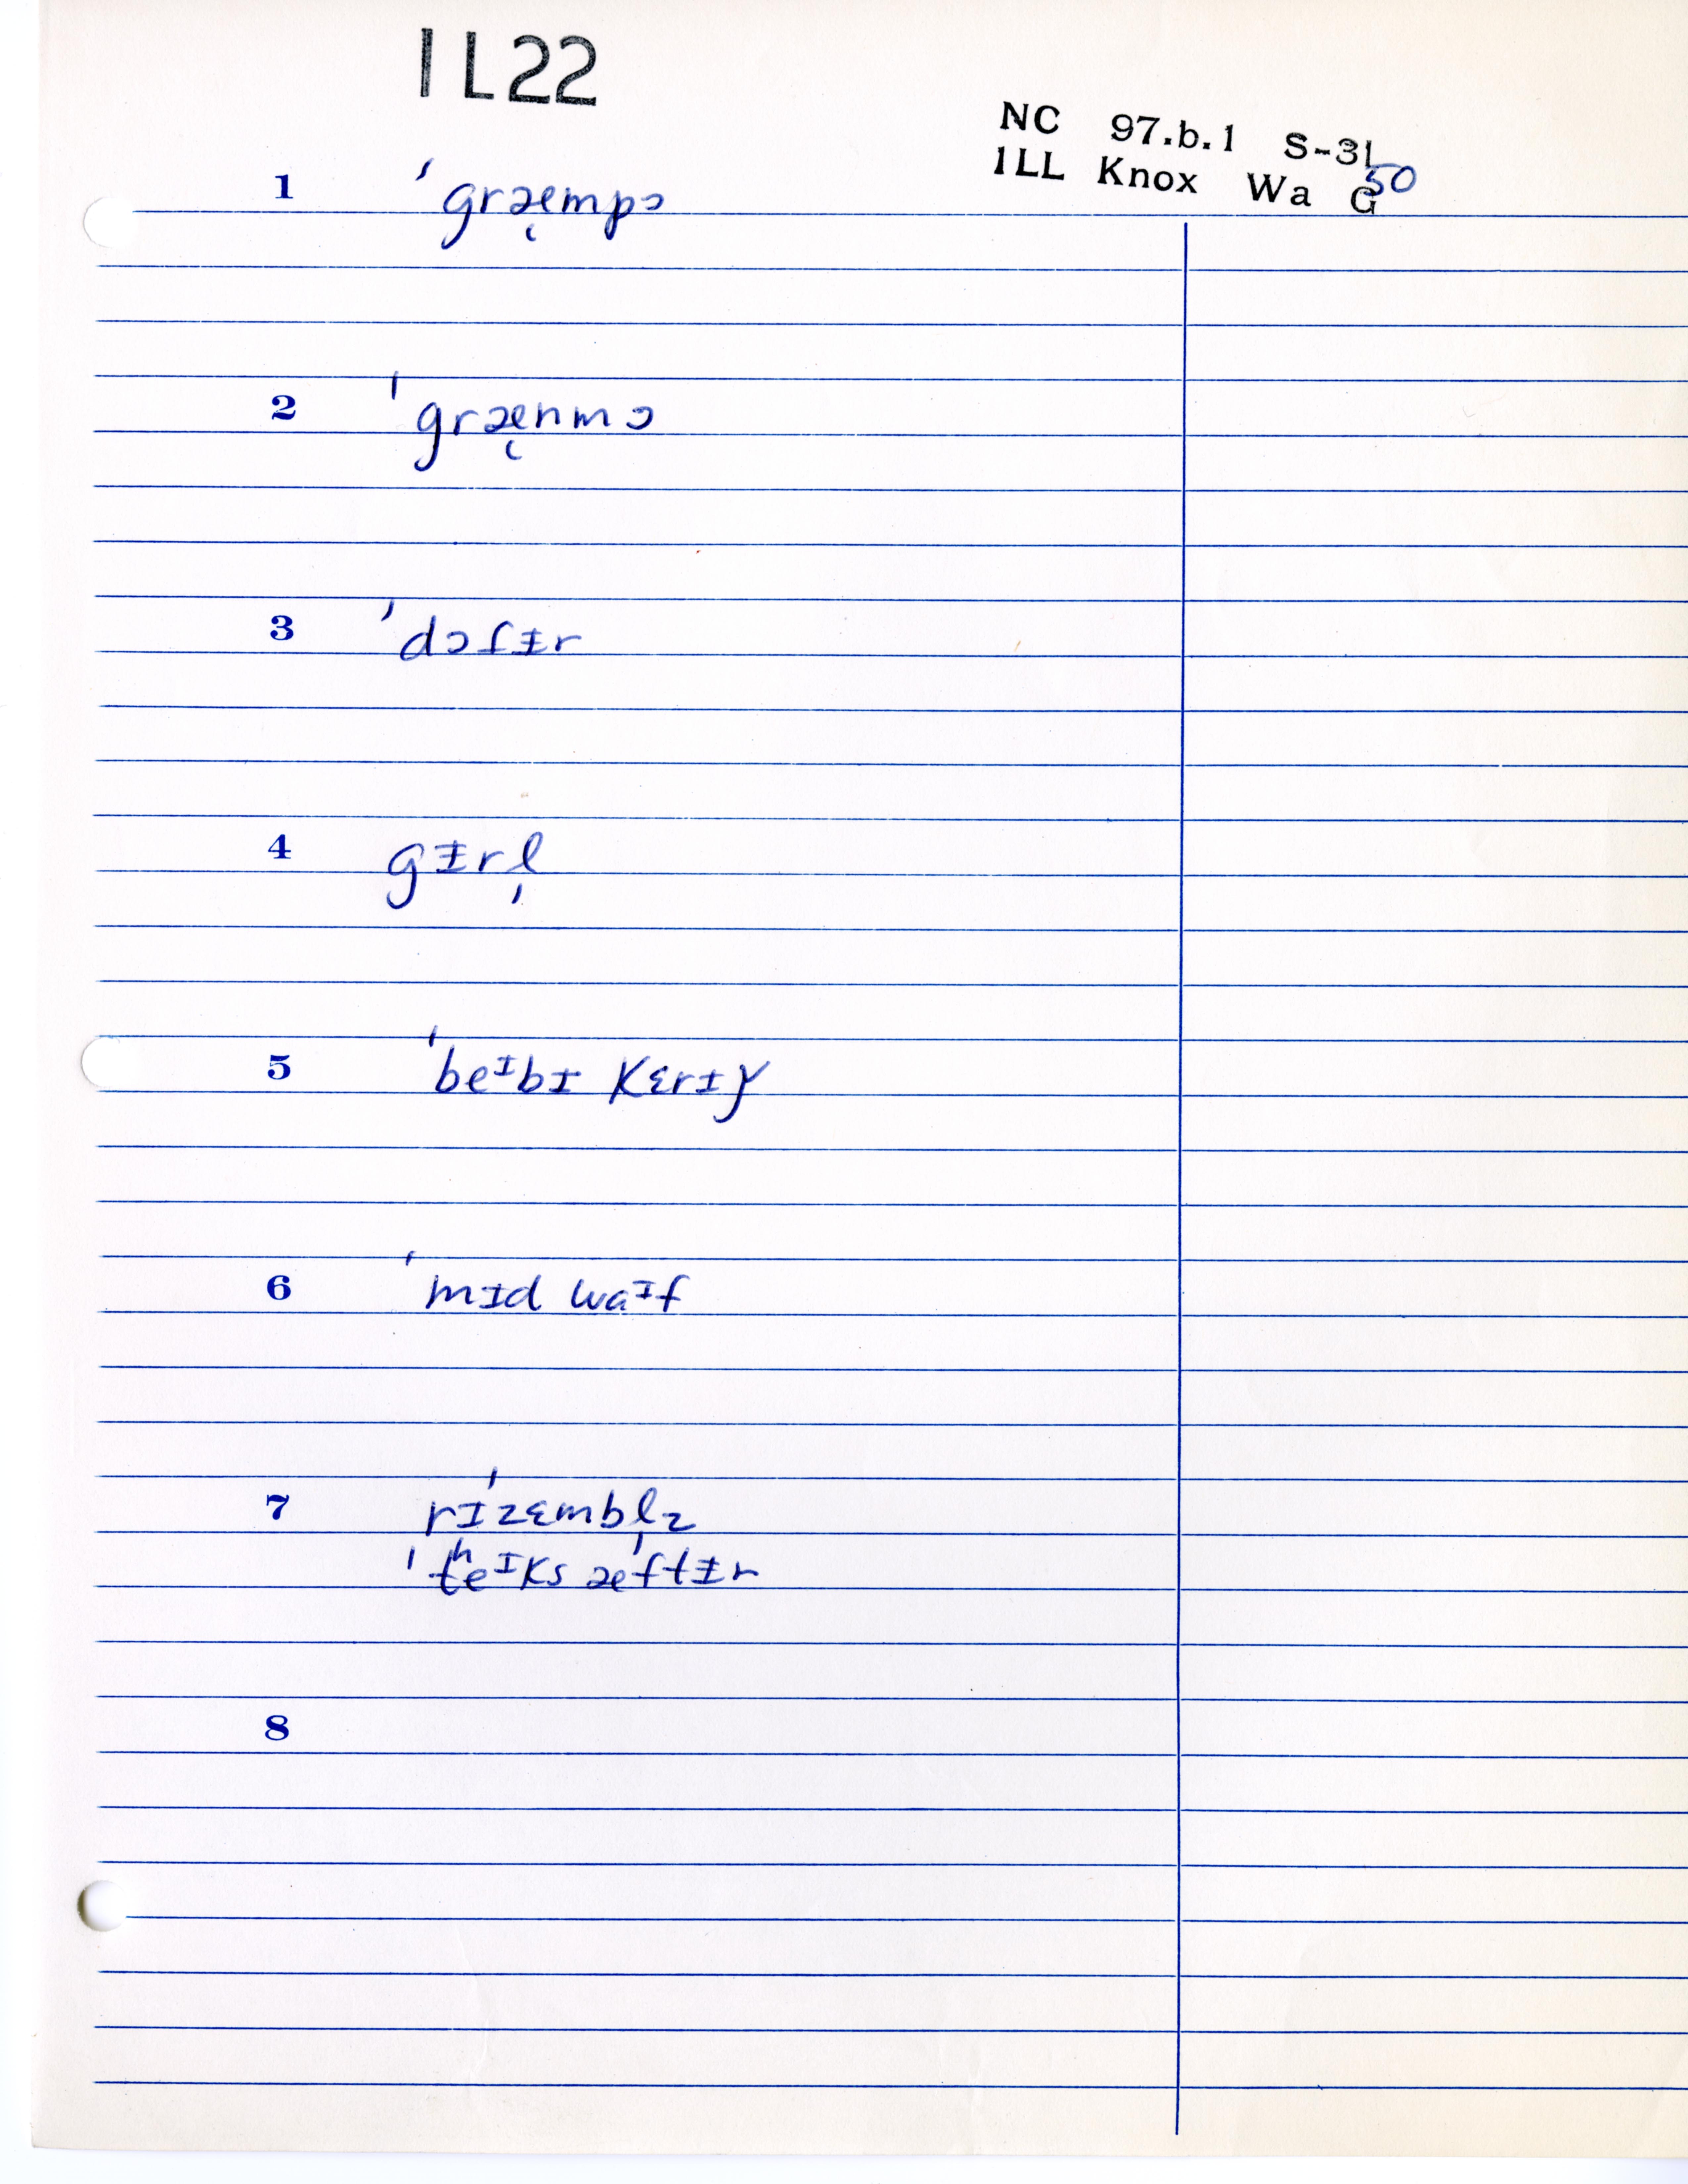 1L22
NC 97.b.1 S-31
1LL Knox Wa G 50
1 ˈgræ̨mpɔ
2 ˈgræ̨nmɔ
3 ˈdɔɾɨr
4 gɨrl̩
5 ˈbeᶦbɪ kɛrɪɟ
6 ˈmɪd waᶦf
7 rɪˈzɛmbl̩z
ˈtʰeᶦks æftɨr
8